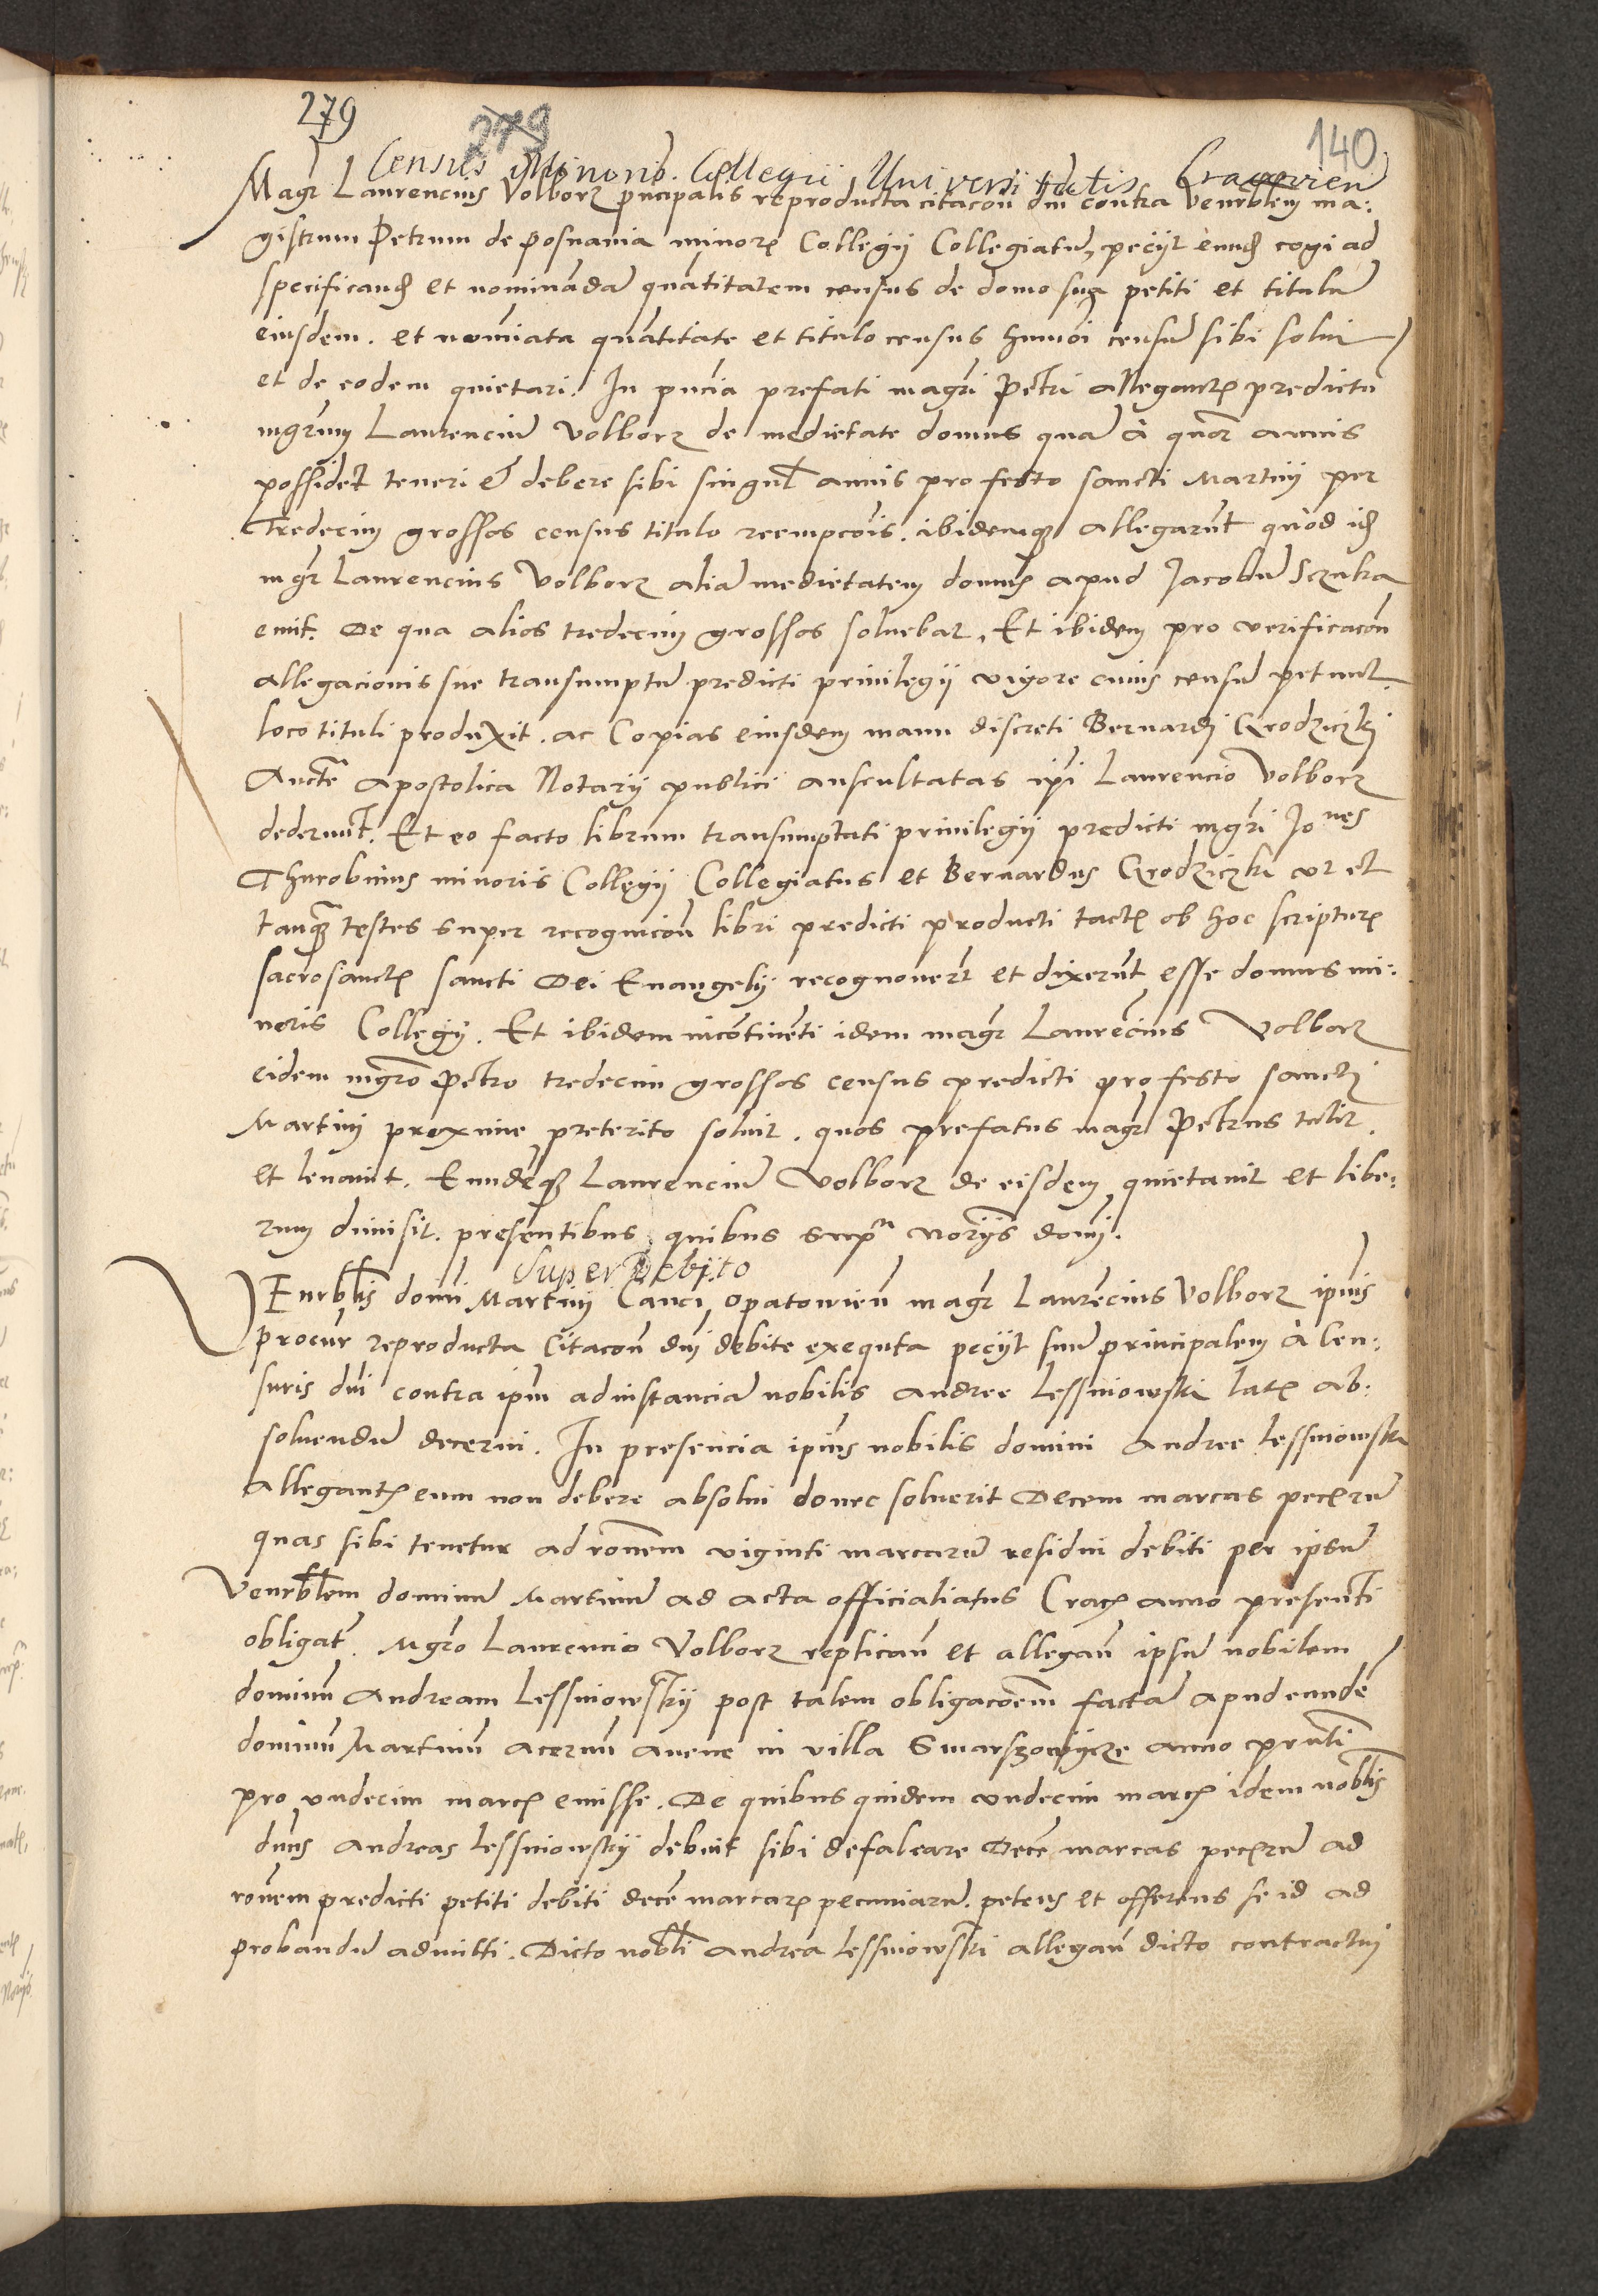 279
279
140
Census Minoris Collegii Universitatis Cracovien
Magr Laurencius Volborz principalis reproducta citacon dni contra venrblem ma:
gistrum Petrum de posnania minorꝭ Collegij Collegiatū, peciit eundꝫ cogi ad
specificandꝫ et nominandā quātitatem census de domo sua petiti et titulū
eiusdem. et nomiata quātitate et titulo census hmoi censū sibi solui
et de eodem quietari. In pncia prefati magri Petri allegantꝭ predictū
mgrum Laurenciū Volborz de medietate domus quā à quor annis
possidet teneri et debere sibi singul annis pro festo sancti Martini per
Tredecim grossos census titulo reempcois. ibidemqꝫ allegarunt quod idꝫ
mgr Laurencius Volborz aliā medietatem domus apud Jacobū Sczuka
emit. De qua alios tredecim grossos soluebat. Et ibidem pro verificacon
allegacionis sue transumptū predicti priuilegij vigore cuius censū petunt
loco tituli produxit. ac Copias eiusdem manu discreti Bernardi Grodziczki
Aucte Apostolica Notarij publici auscultatas ipi Laurencio Volborz
dederunt. Et eo facto librum transumptati priuilegij predicti mgri Jones
Thurobinus minoris Collegij Collegiatus et Bernardus Grodziczki vt et
tanqꝫ testes super recognicon libri predicti producti tactꝭ ob hoc scripturꝭ
sacrosanctꝭ sancti Dei Euangelij recognouert et dixerunt esse domus mi:
noris Collegij. Et ibidem incōtinēti idem magr Laurēcius Volborz
eidem mgro Petro tredecim grossos census predicti pro festo sancti
Martini proxime preterito soluit. quos prefatus magr Petrus tulit.
et leuauit. Eundēqꝫ Laurenciū Volborz de eisdem quietauit et libe:
rum dimisit. presentibus quibus supra norijs domi.
Super Debito
Venrblis domi Martini Canci Opatowien magr Laurēcius Volborz ipius
procur reproducta Citacon dni debite exequta peciit suū principalem à Cen:
suris dni contra ipm ad instanciā nobilis Andree Lessniowski latꝭ ab:
soluendū decerni. In presencia ipius nobilis domini Andree Lessniowski
allegantꝭ eum non debere absolui donec soluerit Decem marcas pecꝭrū
quas sibi tenetur ad ronem viginti marcarū residui debiti per ipsū
Venrblem dominū Martinū ad acta officialiatus Cracꝭ anno presenti
obligat. Mgro Laurencio Volborz replican et allegan ipsū nobilem
dominū Andream Lessniowskij post talem obligacoem factā apud eundē
dominū Martinū aceruū auene in villa Swarszowycze anno prnti
pro vndecim marcꝭ emisse. De quibus quidem vndecim marcꝭ idem noblis
dnus Andreas Lessniowskij debuit sibi defalcare Decē marcas pecꝭrū ad
ronem predicti petiti debiti decē marcarꝭ pecuniarū. petens et offerens se id ad
probandū admitti. Dicto nobli Andrea Lessniowski allegan dicto contractui